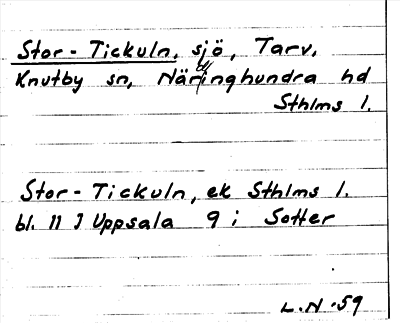 Stor-Tickuln, sjö, Tarv,
Knutby sn, Närdinghundra hd
Sthlms l.
Stor-Tickuln, ek Sthlms l.
bl. 11 J Uppsala 9 i Sotter
L.N.-59